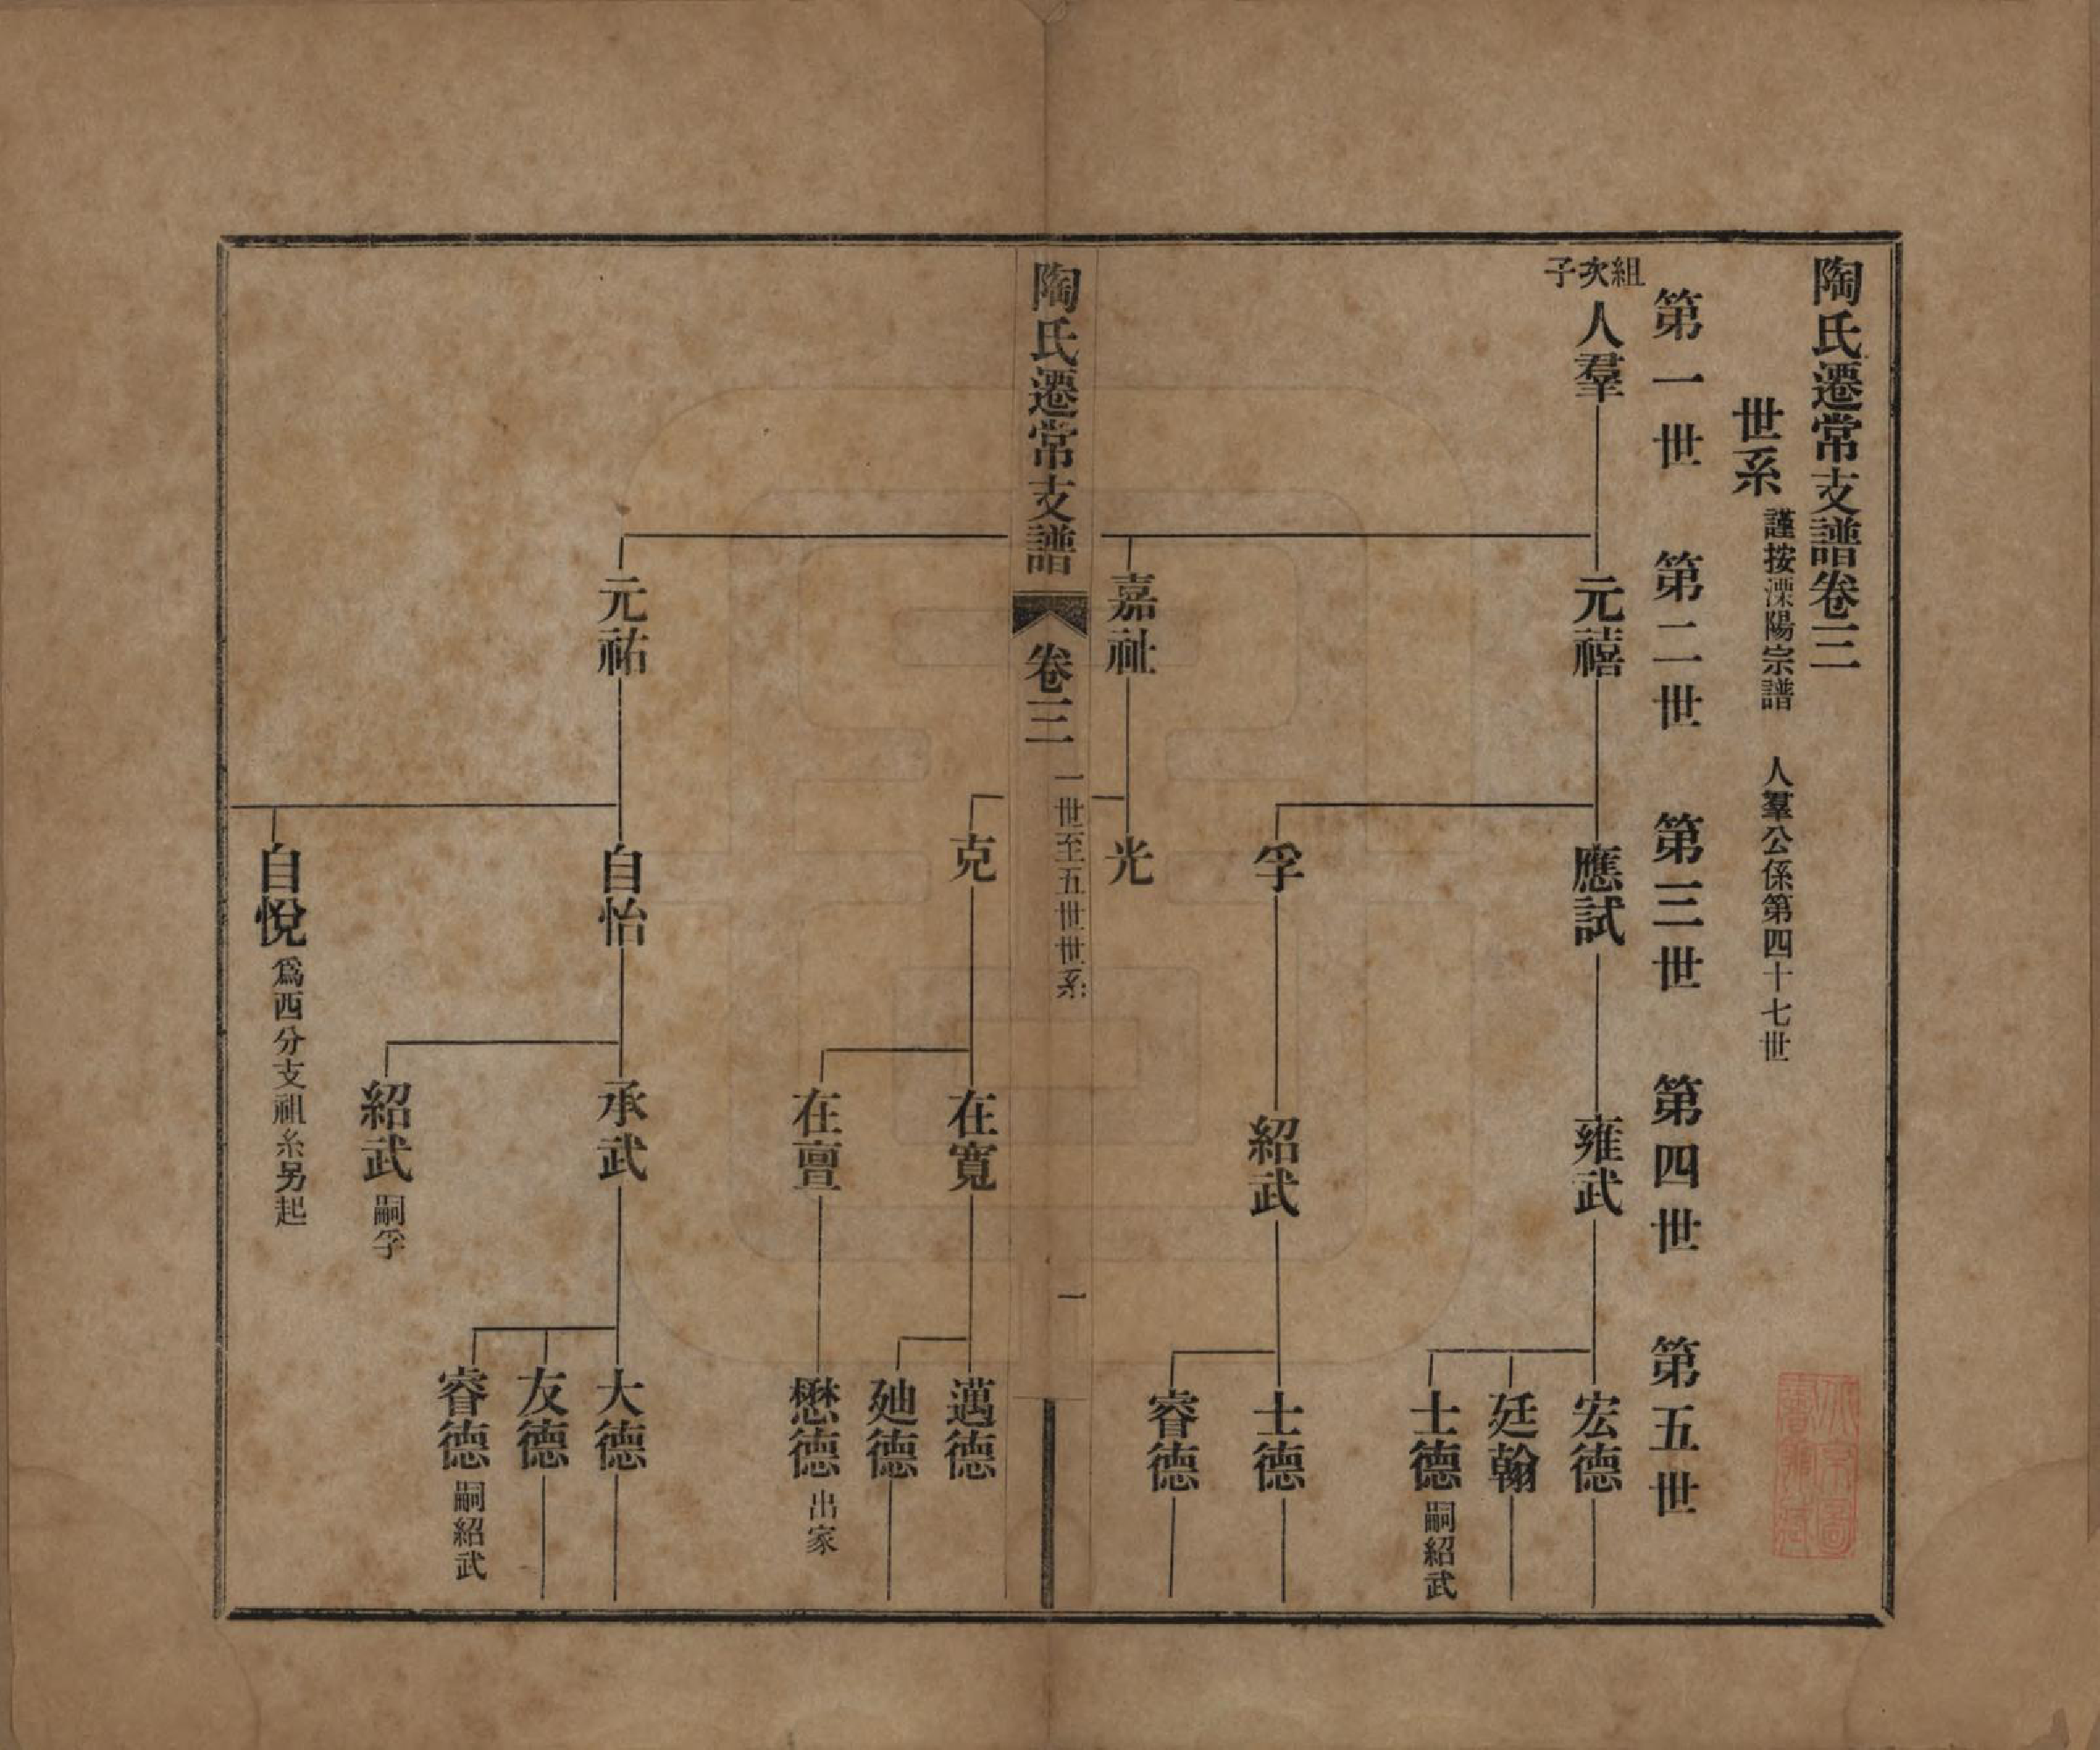 陶氏遷常支譜卷三
世系
謹按溧陽宗譜 人羣公係第四十七世
第一世 第二世 第三世 第四世 第五世
組次子
人羣
元禧
應試
雍武
宏德
廷翰
士德 嗣紹武
孚
紹武
士德
睿德
嘉祉
光
陶氏遷常支譜 卷三 一世至五世世系 一
克
在寬
邁德
廸德
在亶
懋德 出家
元祐
自怡
承武
大德
友德
睿德 嗣紹武
紹武 嗣孚
自悅 爲西分支祖系另起